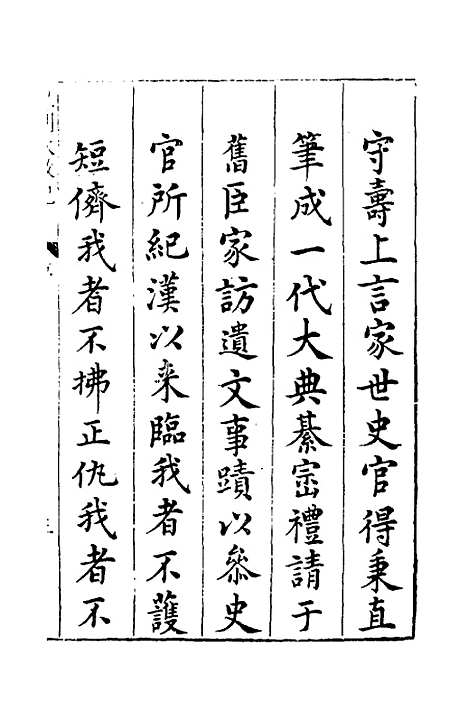 守壽上言家世史官得秉直
筆成一代大典綦崈禮請于
舊臣家訪遺文事蹟以叅史
官所紀漢以来臨我者不䕶
短儕我者不拂正仇我者不